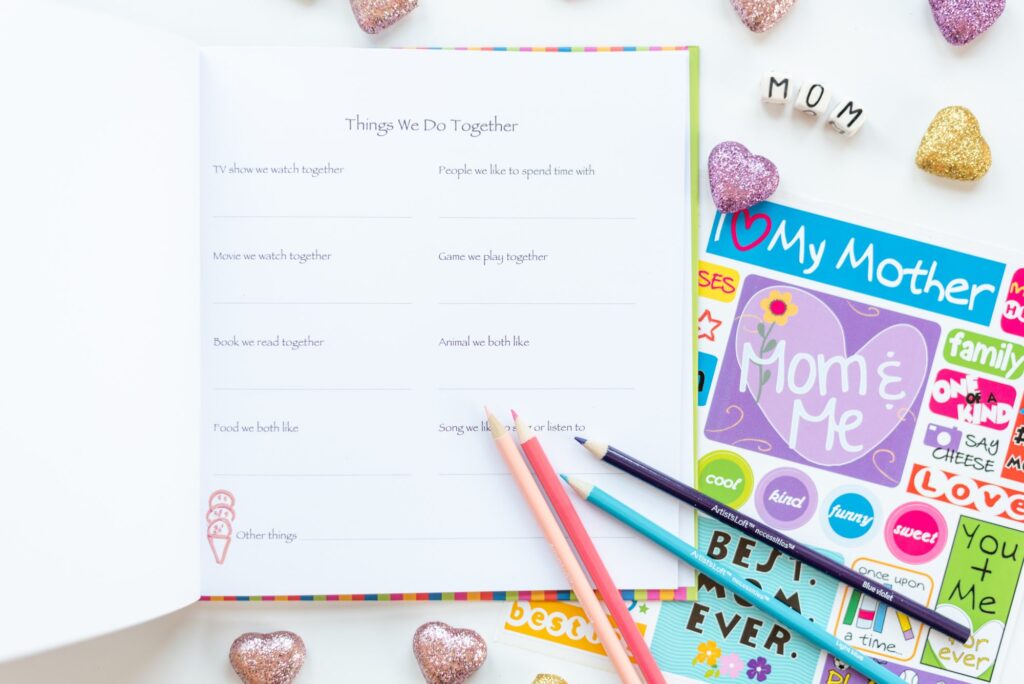 Things We Do Together
TV show we watch together
People we like to spend time with
Movie we watch together
Game we play together
Book we read together
Animal we both like
Food we both like
Song we like to sing or listen to
Other things
MOM
I My Mother
Mom &
Me
family
ONE OF A
KIND
SAY
CHEESE
LOVE
cool
kind
funny
sweet
BEST
MOM
EVER.
once upon
a time...
You
+
Me
For
ever
ArtistsLoft™ necessities™ Blue violet
ArtistsLoft™ necessities™